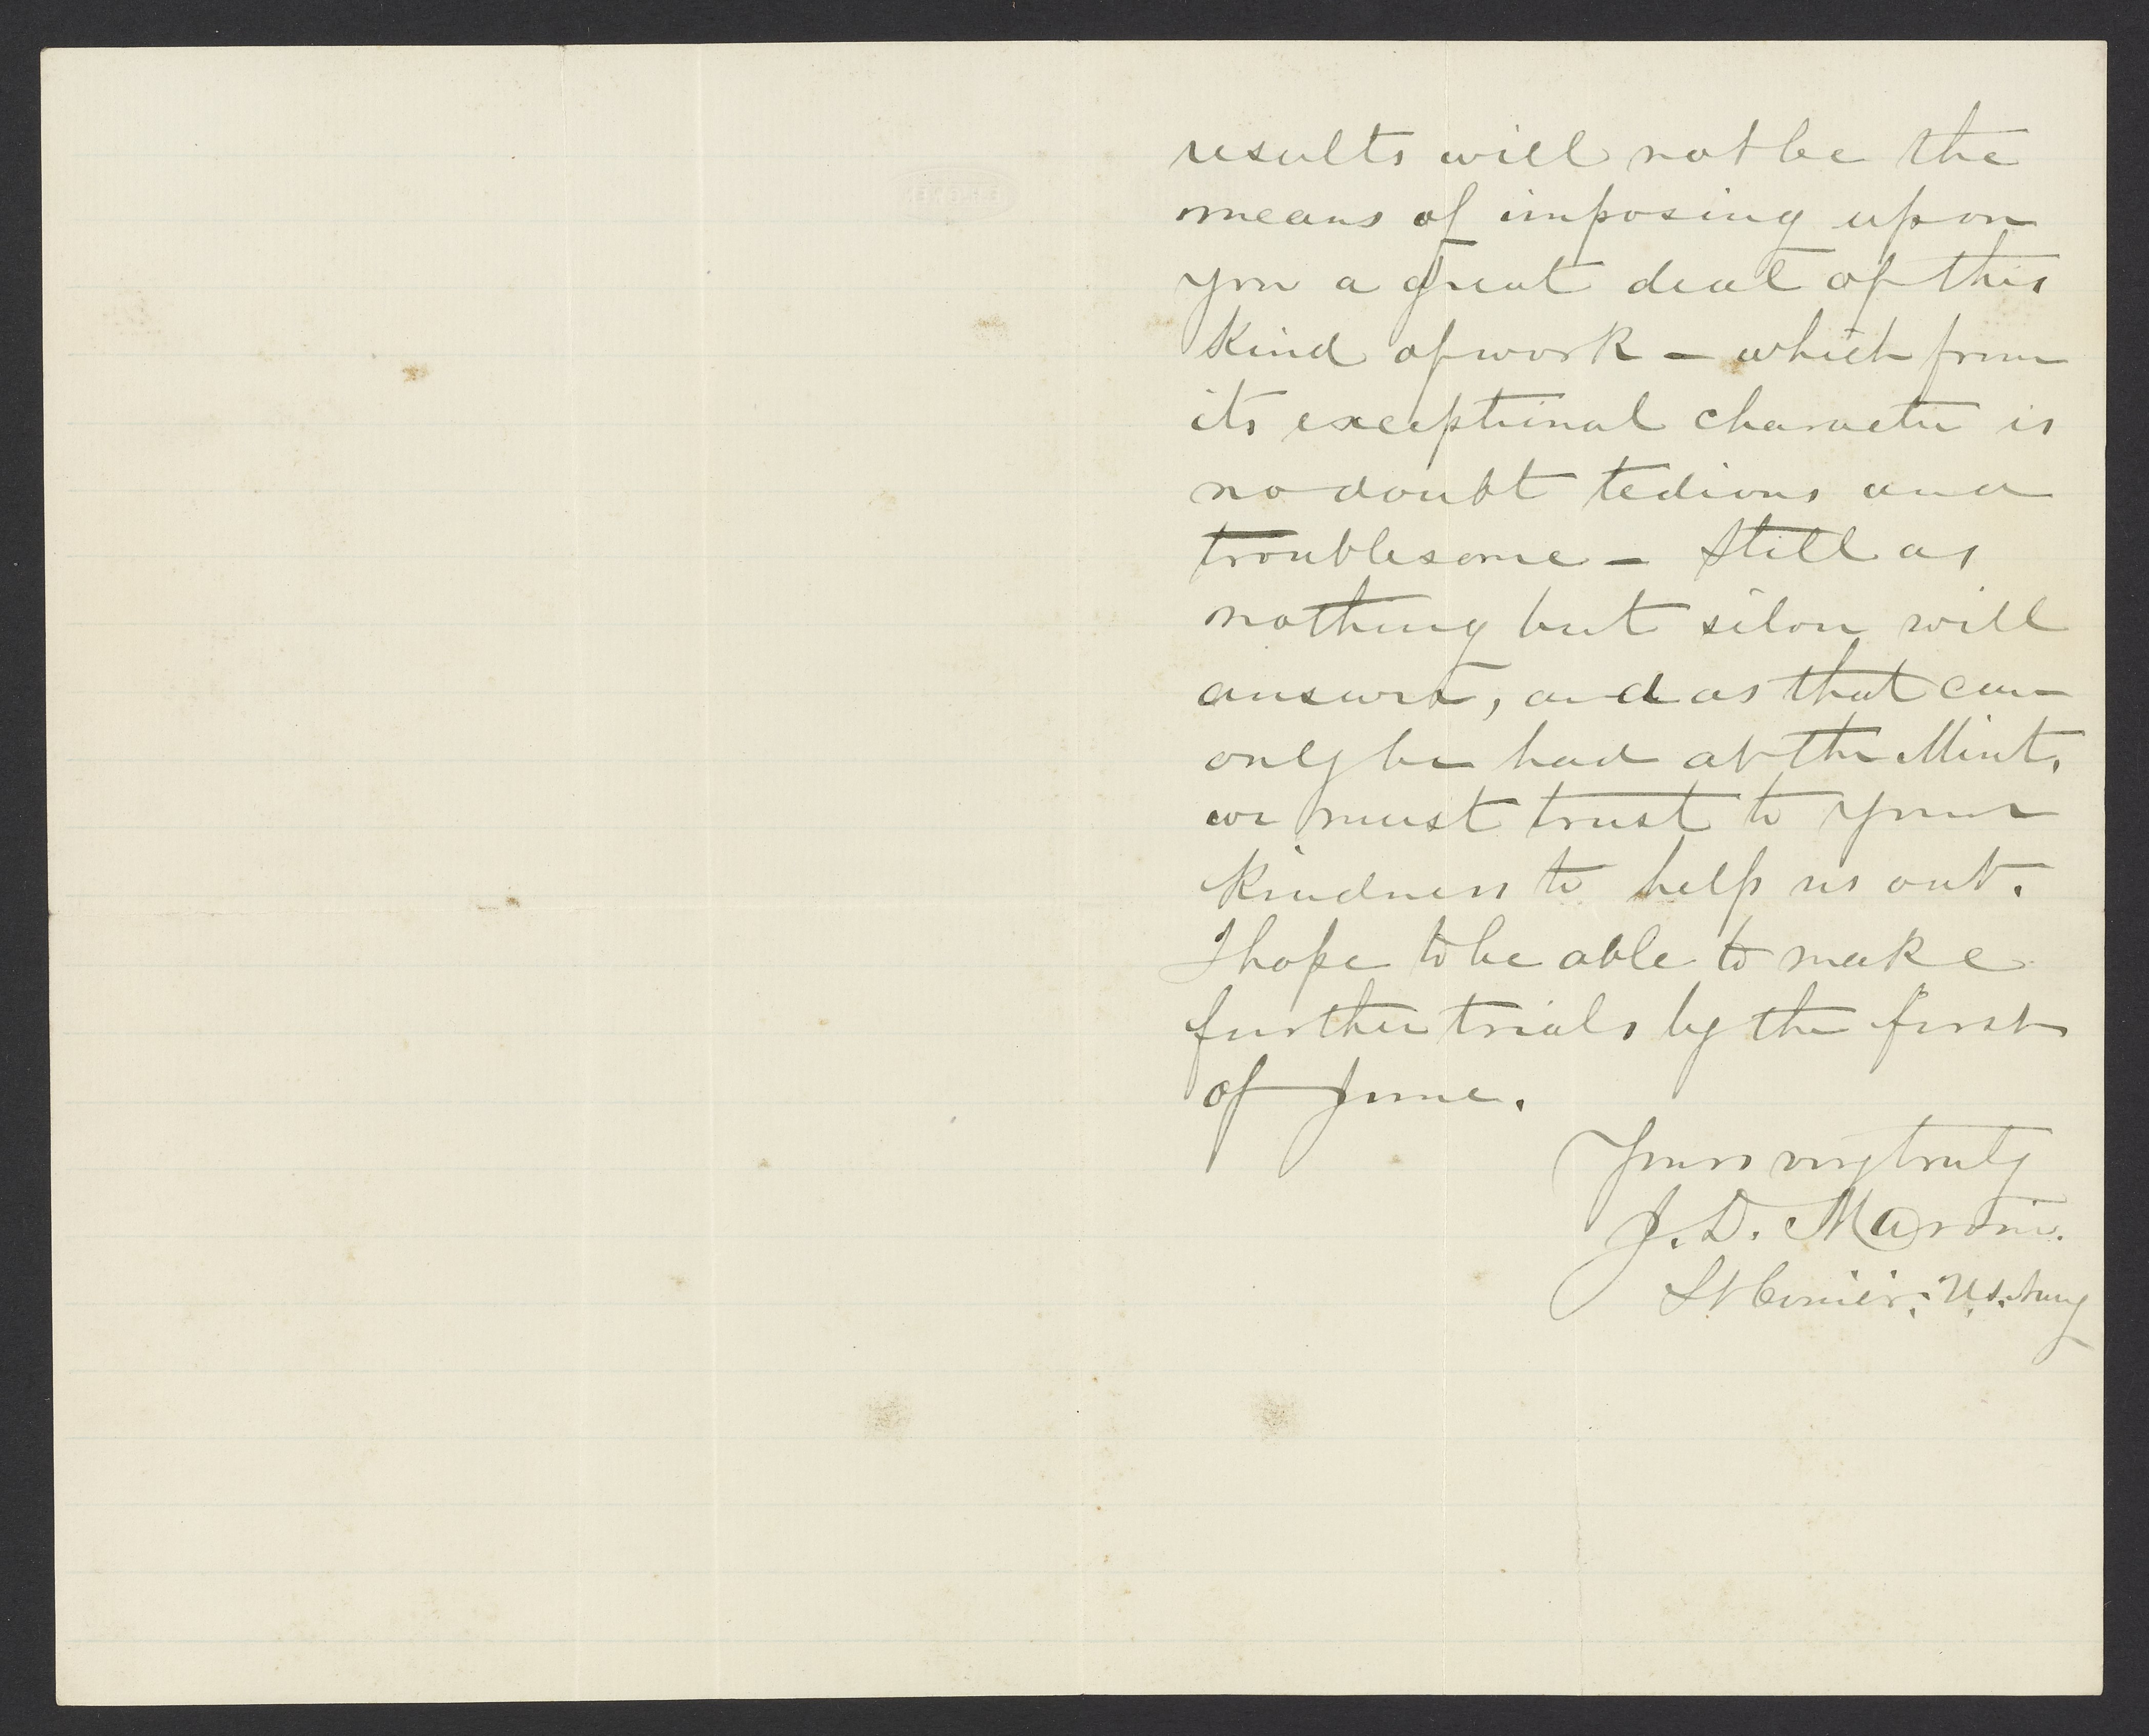 results will not be the
means of imposing upon
you a great deal of this
kind of work – which from
its exceptional character is
no doubt tedious and
troublesome – Still as
nothing but silver will
answer, and as that can
only be had at the Mint,
we must trust to your
kindness to help us out.
I hope to be able to make
further trials by the first
of June.
Yours very truly
J. D. Marvin.
St Army